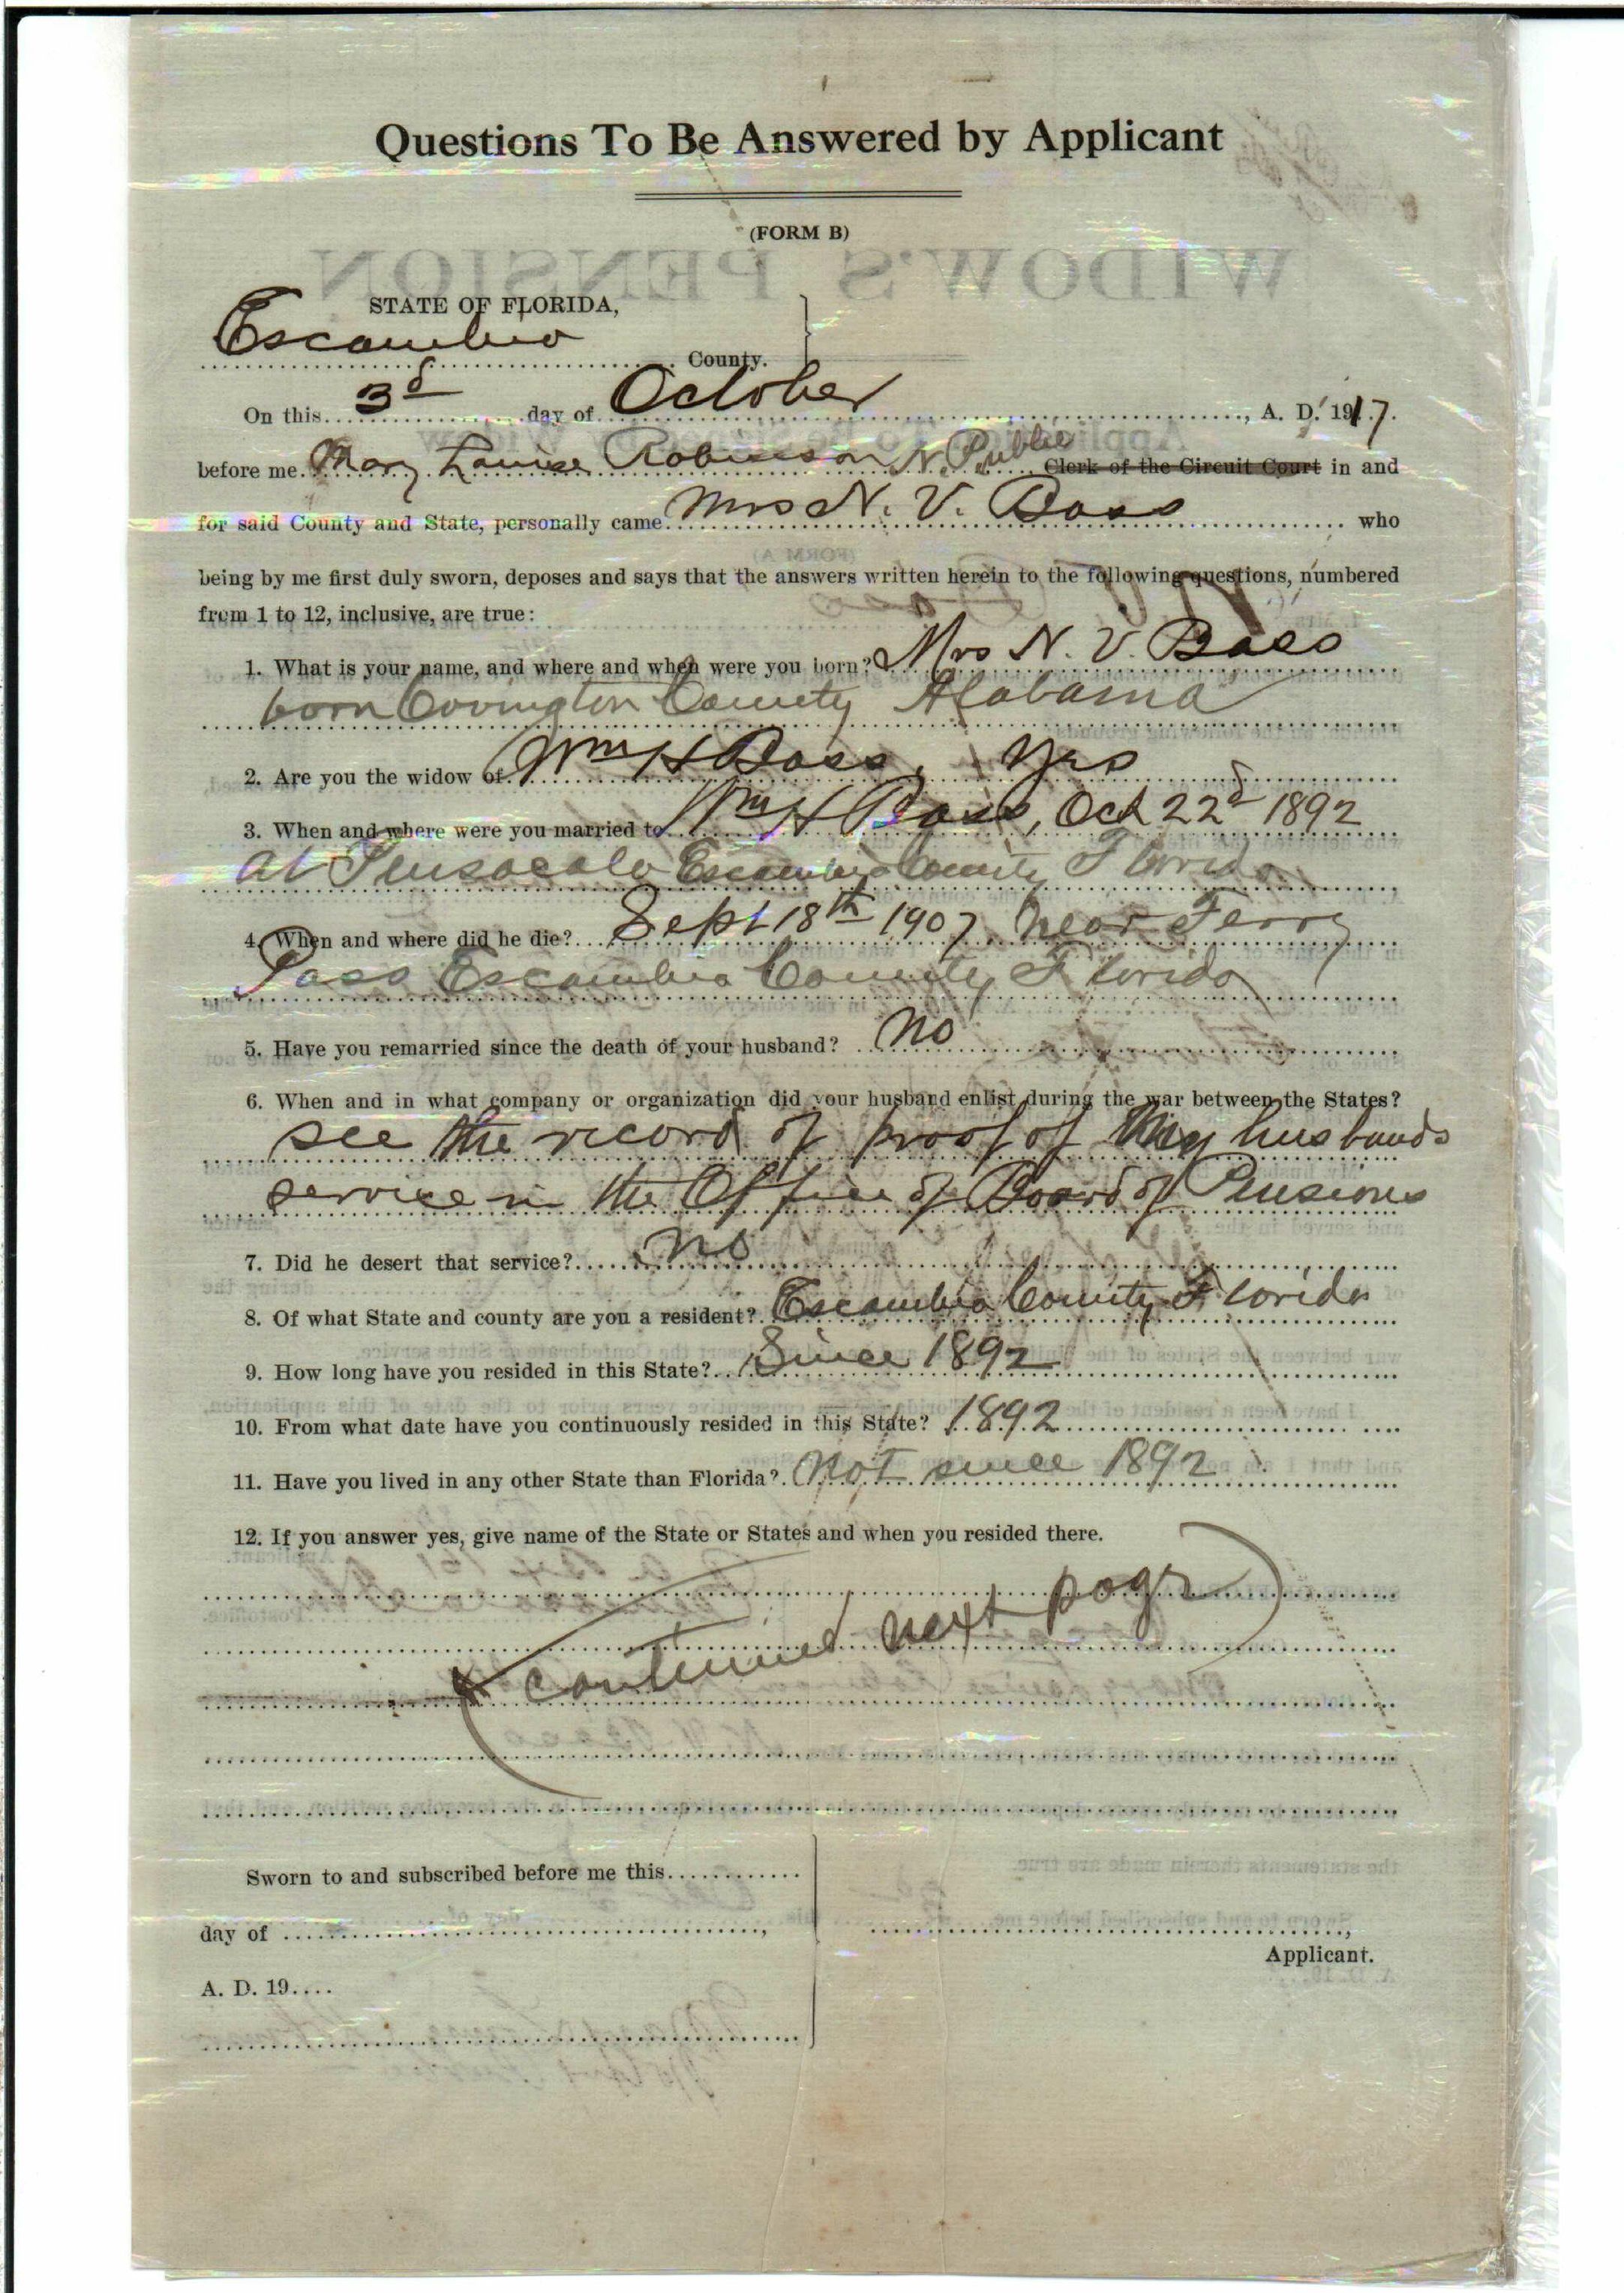 Questions To Be Answered by Applicant
(FORM B)
WIDOW'S PENSION
STATE OF FLORIDA,
Escambia County.
On this 3d day of October, A. D. 1917.
before me Mary Louise Robinson N. Public Clerk of the Circuit Court in and
for said County and State, personally came Mrs N. V. Bass who
being by me first duly sworn, deposes and says that the answers written herein to the following questions, numbered
from 1 to 12, inclusive, are true:
1. What is your name, and where and when were you born? Mrs N. V. Bass
born Covington County Alabama
2. Are you the widow of Wm H Bass, Yes
3. When and where were you married to Wm H Bass, Oct 22d 1892
at Pensacola Escambia County Florida
4. When and where did he die? Sept 18th 1907 near Ferry
Pass Escambia County Florida
5. Have you remarried since the death of your husband? No
6. When and in what company or organization did your husband enlist during the war between the States?
see the record of proof of my husbands
service in the Office of Board of Pensions
7. Did he desert that service? No
8. Of what State and county are you a resident? Escambia County Florida
9. How long have you resided in this State? Since 1892
10. From what date have you continuously resided in this State? 1892
11. Have you lived in any other State than Florida? Not since 1892
12. If you answer yes, give name of the State or States and when you resided there.
(continued next page)
Sworn to and subscribed before me this
day of ,
Applicant.
A. D. 19